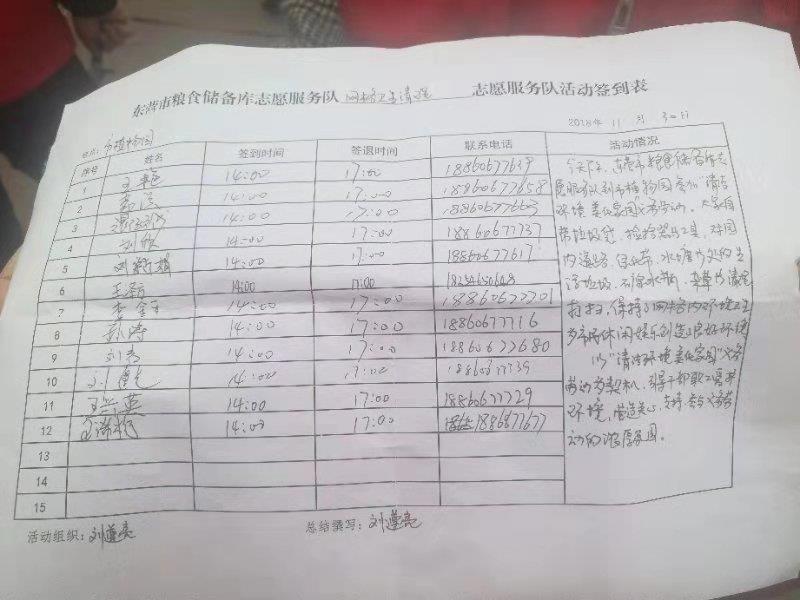 东营市粮食储备库志愿服务队 网格卫生清理 志愿服务队活动签到表
2018年 11 月 30日
地点: 市植物园
序号 姓名 签到时间 签退时间 联系电话 活动情况
1 王艳 14:00 17:00 18860677639
2 14:00 17:00 18860677658
3 14:00 17:00 18860677663
4 刘欣 14:00 17:00 18860677737
5 14:00 17:00 18860677617
6 14:00 17:00
7 14:00 17:00 18860677701
8 孙涛 14:00 17:00 18860677716
9 14:00 17:00 18860677680
10 14:00 17:00 18860677739
11 14:00 17:00 18860677729
12 14:00 17:00
13
14
15
今天下午,东营市粮食储备库志
愿服务队到市植物园参加"清洁
环境 美化家园"义务劳动。大家自
带垃圾袋、捡拾器工具,对园
内道路、绿化带、水塘等处的生
活垃圾、 、杂草等清理
打扫,保持了网格内环境卫生
为市民休闲娱乐创造良好环境
以"清洁环境 美化家园"义务
劳动为契机,引导干部职工爱护
环境,营造关心、支持、参与义务劳
动的浓厚氛围。
活动组织:刘遵亮
总结撰写:刘遵亮